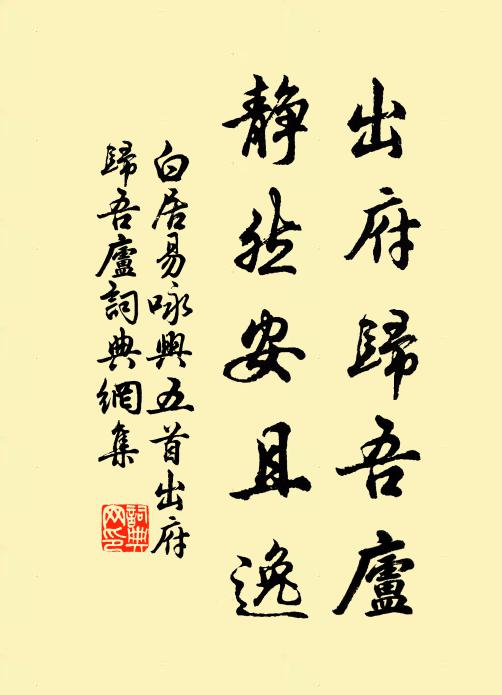 出府歸吾廬
静然安且逸
白居易咏興五首出府
歸吾廬詞典網集
詞典
网印